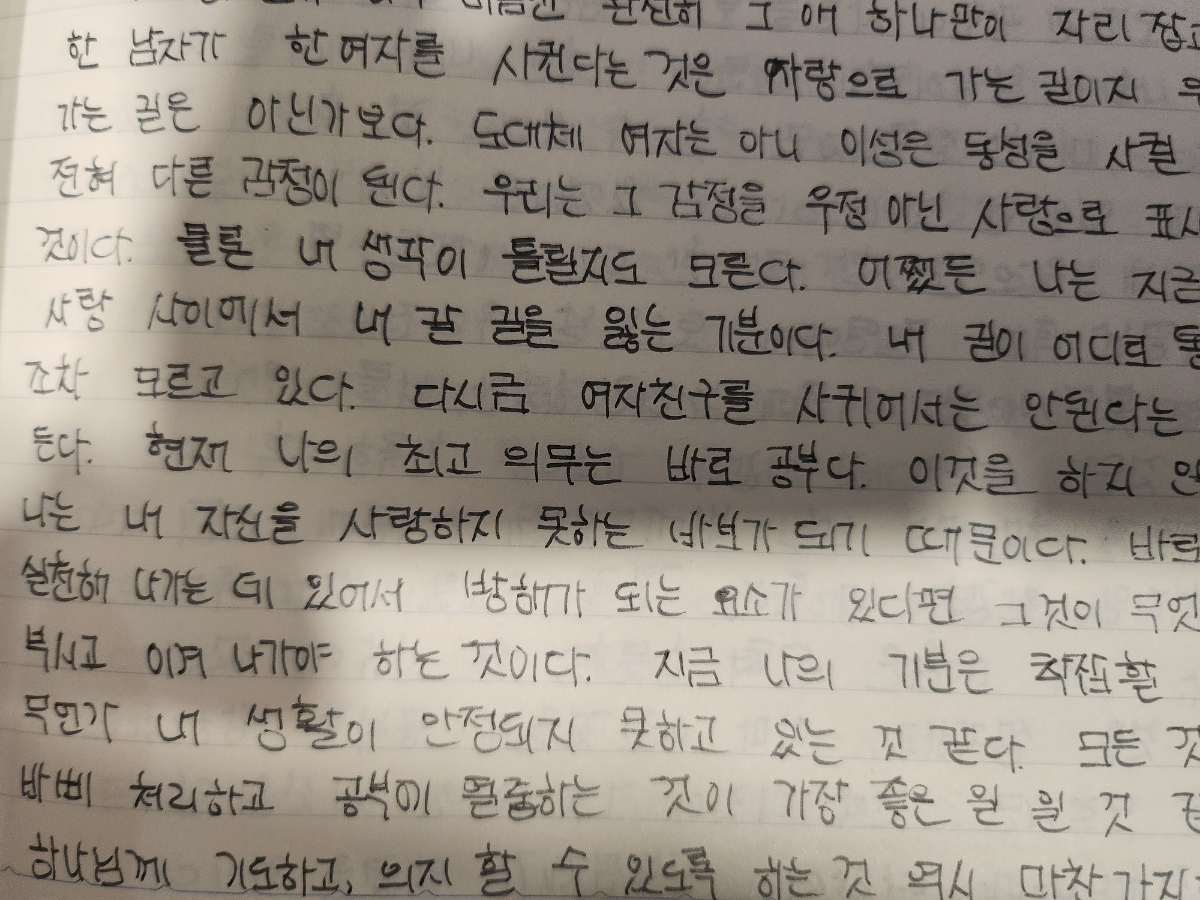 완전히 그 애 하나만이 자리
한 남자가 한 여자를 사귄다는 것은 사랑으로 가는 길이지
가는 길은 아닌가보다. 도대체 여자는 아니 이성은 동성을 사귈
전혀 다른 감정이 된다. 우리는 그 감정을 우정 아닌 사랑으로
것이다. 물론 내 생각이 틀릴지도 모른다. 어쨌든 나는 지금
사랑 사이에서 내 갈 길을 잃는 기분이다. 내 길이 어디로
조차 모르고 있다. 다시금 여자친구를 사귀어서는 안된다는
든다. 현재 나의 최고 의무는 바로 공부다. 이것을 하지
나는 내 자신을 사랑하지 못하는 바보가 되기 때문이다. 바로
실천해 나가는 데 있어서 방해가 되는 요소가 있다면 그것이
부시고 이겨 나가야 하는 것이다. 지금 나의 기분은 착잡할
무언가 내 생활이 안정되지 못하고 있는 것 같다. 모든
바삐 처리하고 공부에 열중하는 것이 가장 좋은 일 일 것
하나님께 기도하고, 의지 할 수 있도록 하는 것 역시